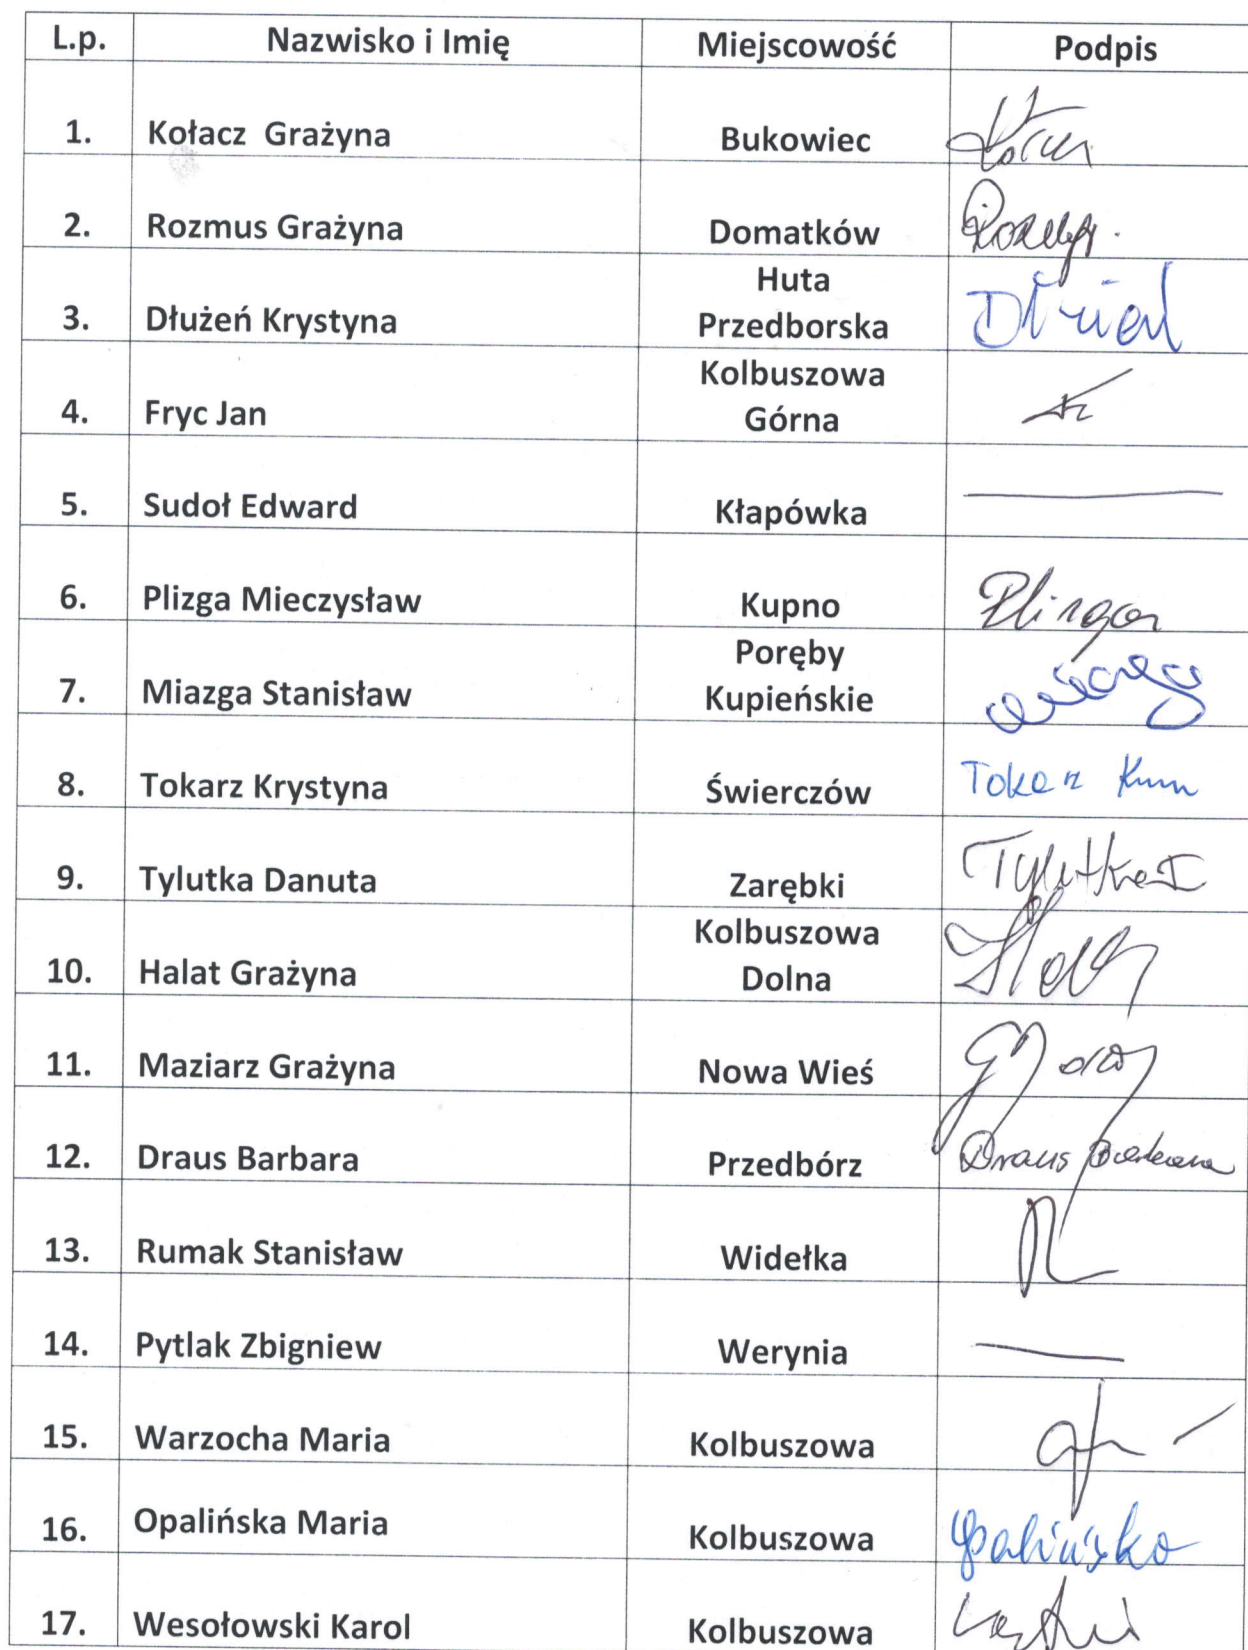 L.p. Nazwisko i Imię Miejscowość Podpis
1. Kołacz Grażyna Bukowiec
2. Rozmus Grażyna Domatków
Huta
3. Dłużeń Krystyna Przedborska
Kolbuszowa
4. Fryc Jan Górna
5. Sudoł Edward Kłapówka
6. Plizga Mieczysław Kupno Plizga
Poręby
7. Miazga Stanisław Kupieńskie
8. Tokarz Krystyna Świerczów Tokarz
9. Tylutka Danuta Zarębki Tylutka
Kolbuszowa
10. Halat Grażyna Dolna
11. Maziarz Grażyna Nowa Wieś
12. Draus Barbara Przedbórz Draus Barbara
13. Rumak Stanisław Widełka
14. Pytlak Zbigniew Werynia
15. Warzocha Maria Kolbuszowa
16. Opalińska Maria Kolbuszowa Opalińska
17. Wesołowski Karol Kolbuszowa